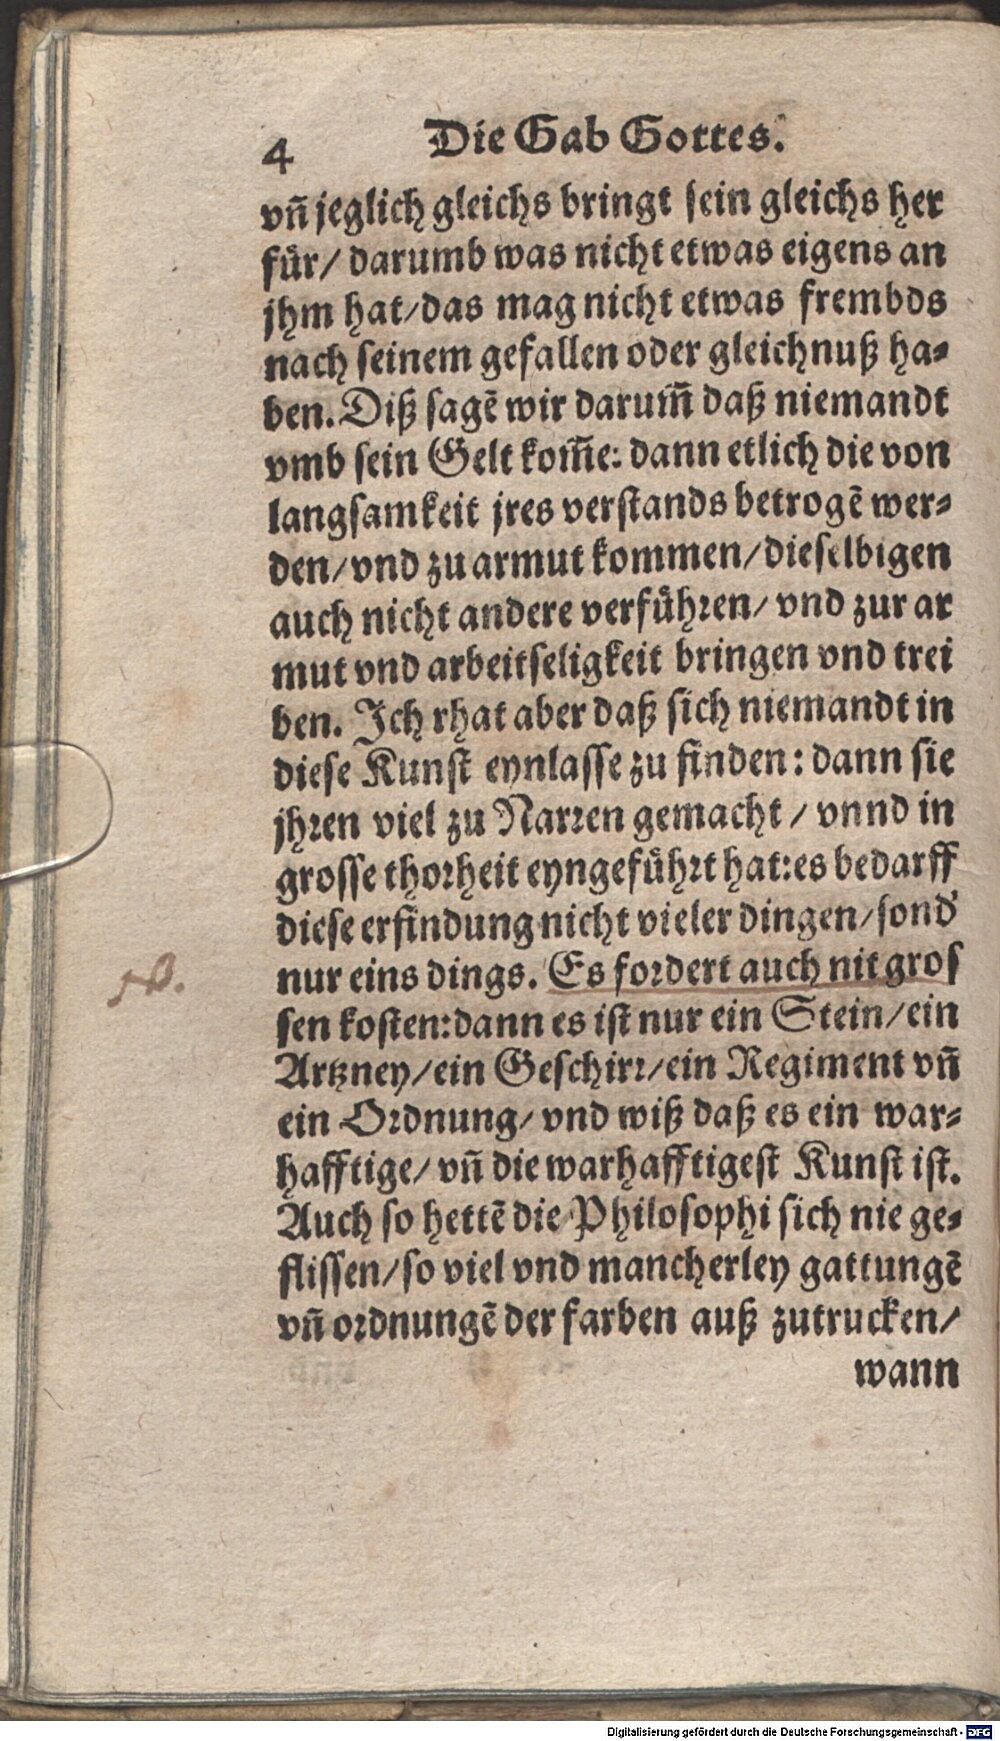 4 Die Gab Gottes.
vñ jeglich gleichs bringt sein gleichs her
für/ darumb was nicht etwas eigens an
jhm hat/das mag nicht etwas frembds
nach seinem gefallen oder gleichnuß ha-
ben. Diß sagẽ wir darum̃ daß niemandt
vmb sein Gelt kom̃e: dann etlich die von
langsamkeit jres verstands betrogẽ wer-
den/vnd zu armut kommen/dieselbigen
auch nicht andere verführen/ vnd zur ar
mut vnd arbeitseligkeit bringen vnd trei
ben. Ich rhat aber daß sich niemandt in
diese Kunst eynlasse zu finden: dann sie
jhren viel zu Narren gemacht / vnnd in
grosse thorheit eyngeführt hat: es bedarff
diese erfindung nicht vieler dingen/sond'
nur eins dings. Es fordert auch nit gros
sen kosten: dann es ist nur ein Stein/ein
Artzney/ein Geschirr/ein Regiment vñ
ein Ordnung/ vnd wiß daß es ein war-
hafftige/ vñ die warhafftigest Kunst ist.
Auch so hettẽ die Philosophi sich nie ge-
flissen/so viel vnd mancherley gattungẽ
vñ ordnungẽ der farben auß zutrucken/
wann
Digitalisierung gefördert durch die Deutsche Forschungsgemeinschaft - DFG